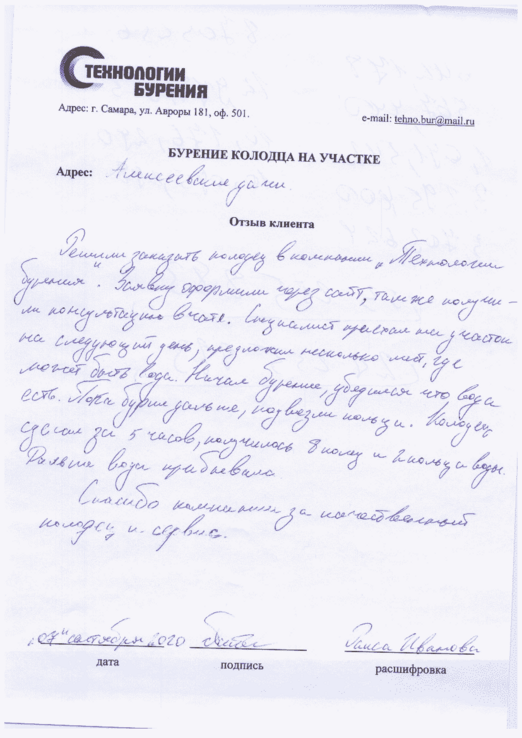 ТЕХНОЛОГИИ
БУРЕНИЯ
Адрес: г. Самара, ул. Авроры 181, оф. 501.
e-mail: tehno.bur@mail.ru
БУРЕНИЕ КОЛОДЦА НА УЧАСТКЕ
Адрес: Алексеевские дачи.
Отзыв клиента
Решили заказать колодец в компании „Технологии
бурения". Заявку оформили через сайт, там же получи-
ли консультацию в чате. Специалист приехал на участок
на следующий день, предложил несколько мест, где
может быть вода. Начал бурение, убедился что вода
есть. Пока бурил дальше, подвезли кольца. Колодец
сделал за 5 часов, получилось 8 колец и 2 кольца воды.
Дальше вода прибывала.
Спасибо компании за качественный
колодец и сервис.
„07" сентября 2020
Раиса Иванова
дата
подпись
расшифровка